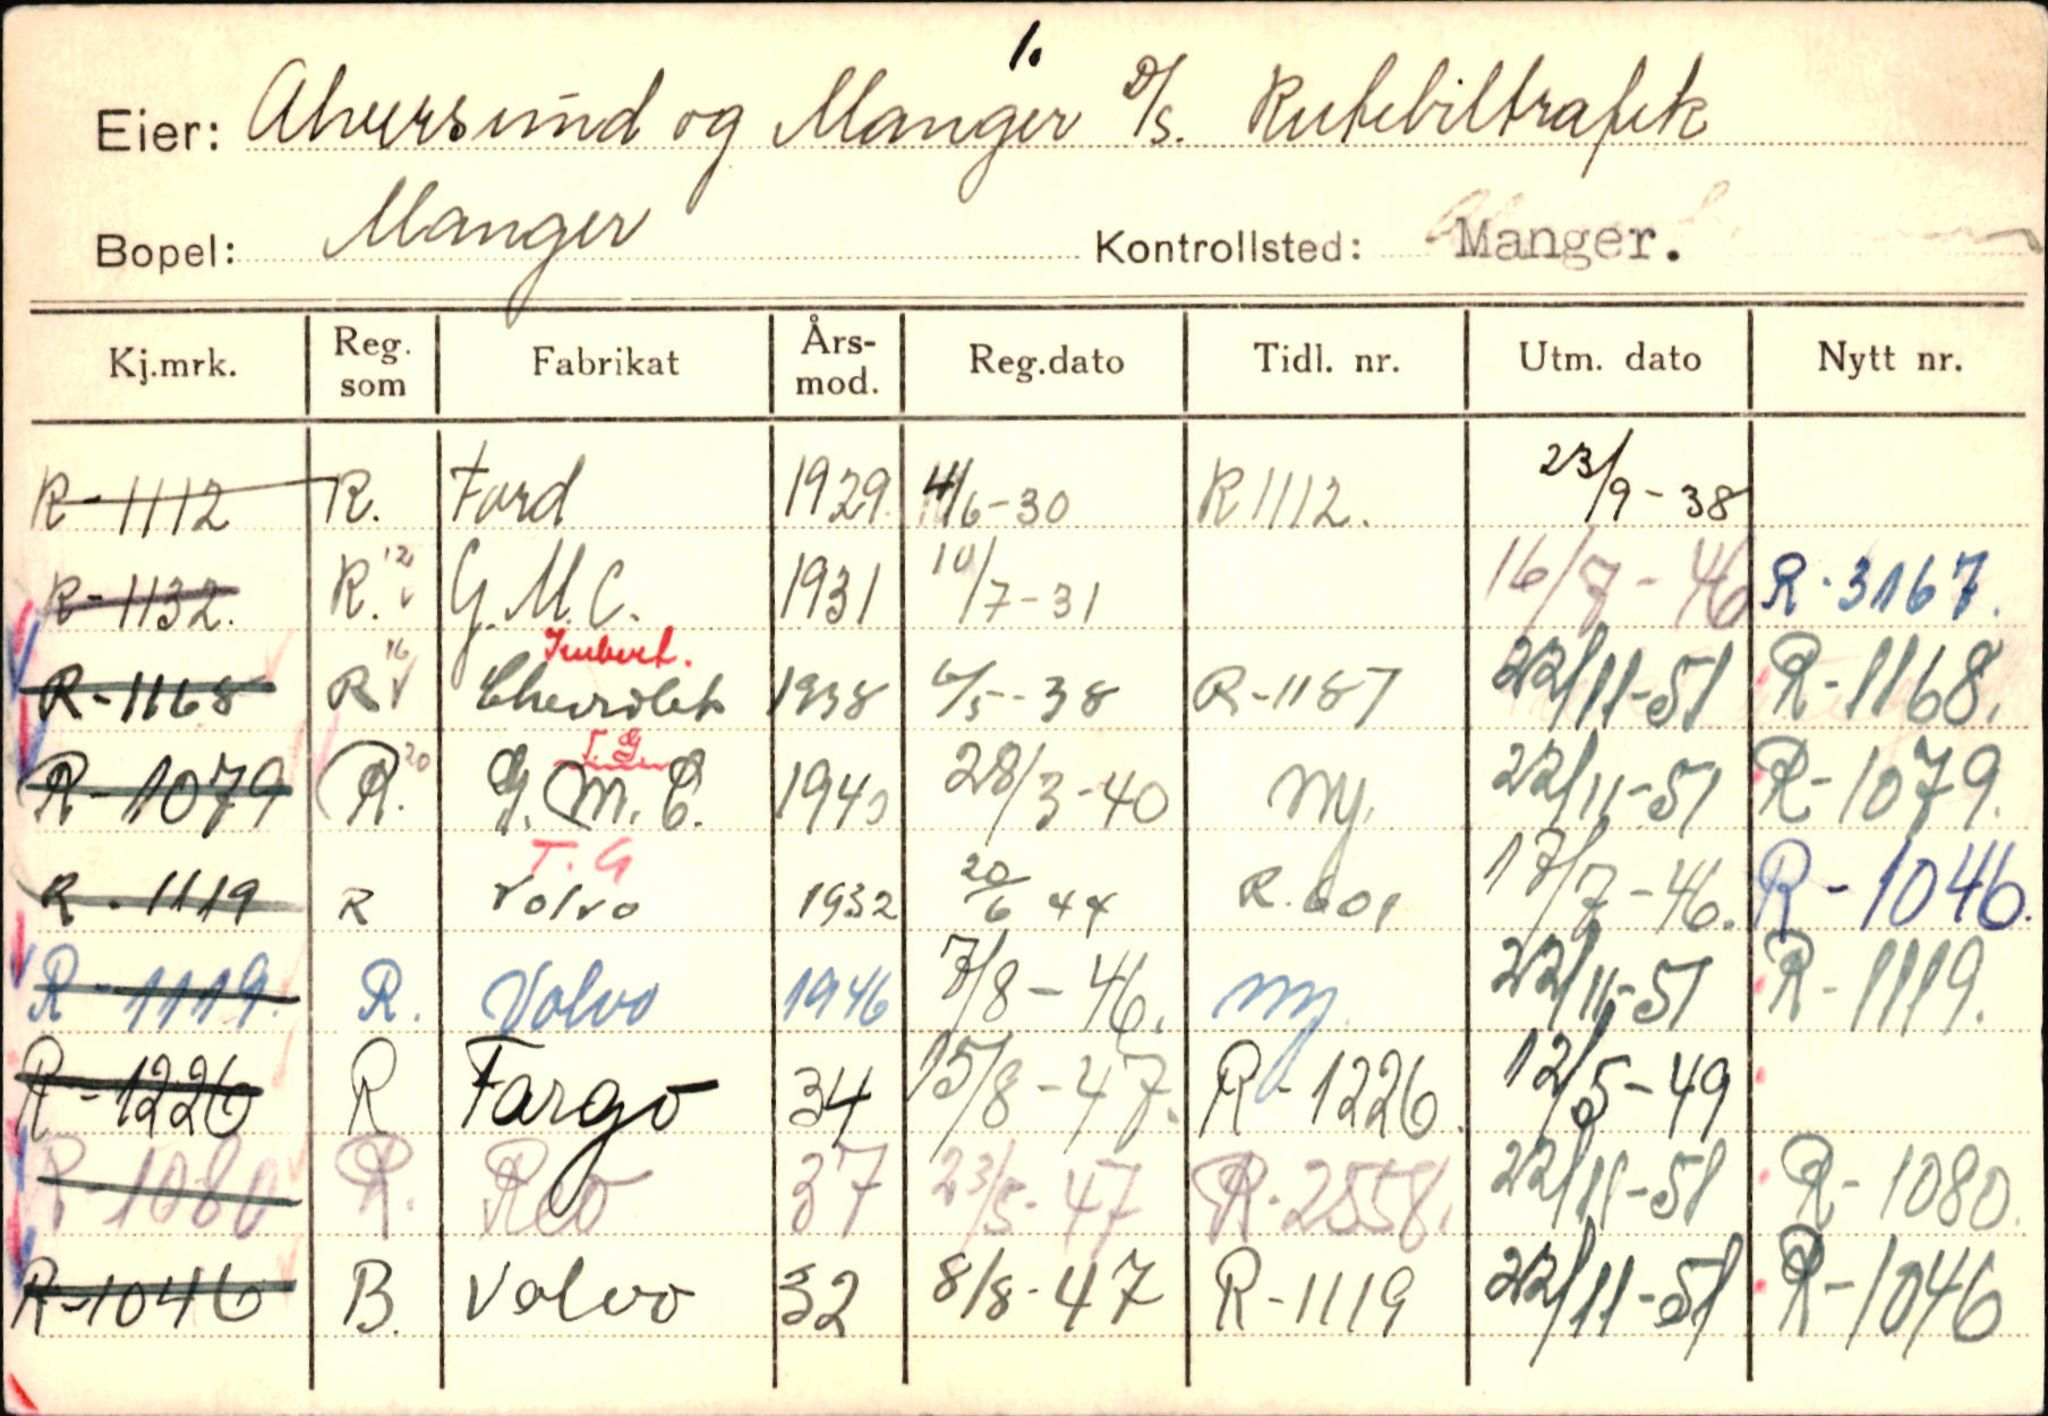 1.
Eier: Alversund og Manger D/s. Rutebiltrafik
Bopel: Manger Kontrollsted: Manger.
Kj.mrk. Reg. som Fabrikat Års-mod. Reg.dato Tidl. nr. Utm. dato Nytt nr.
R-1112 R. Ford 1929. 4/6-30 R 1112. 23/9-38
R-1132. R. 12 G.M.C. 1931 10/7-31 16/7-46 R-3167.
Imbert.
R-1168 R 16 Chevrolet 1938 6/5-38 R-1187 22/11-51 R-1168.
T.G
R-1079 R. 20 G.M.C. 1940 28/3-40 ny. 22/11-51 R-1079.
T.G
R-1119 R Volvo 1932 20/6 44 R.601 17/7-46. R-1046.
R-1119. R. Volvo 1946 7/8-46. ny. 22/11-51 R-1119.
R-1226 R Fargo 34 15/8-47. R-1226. 12/5-49
R-1080 R. Reo 37 23/5-47 R-2558. 22/11-51 R-1080.
R-1046 B. Volvo 32 8/8-47 R-1119 22/11-51 R-1046